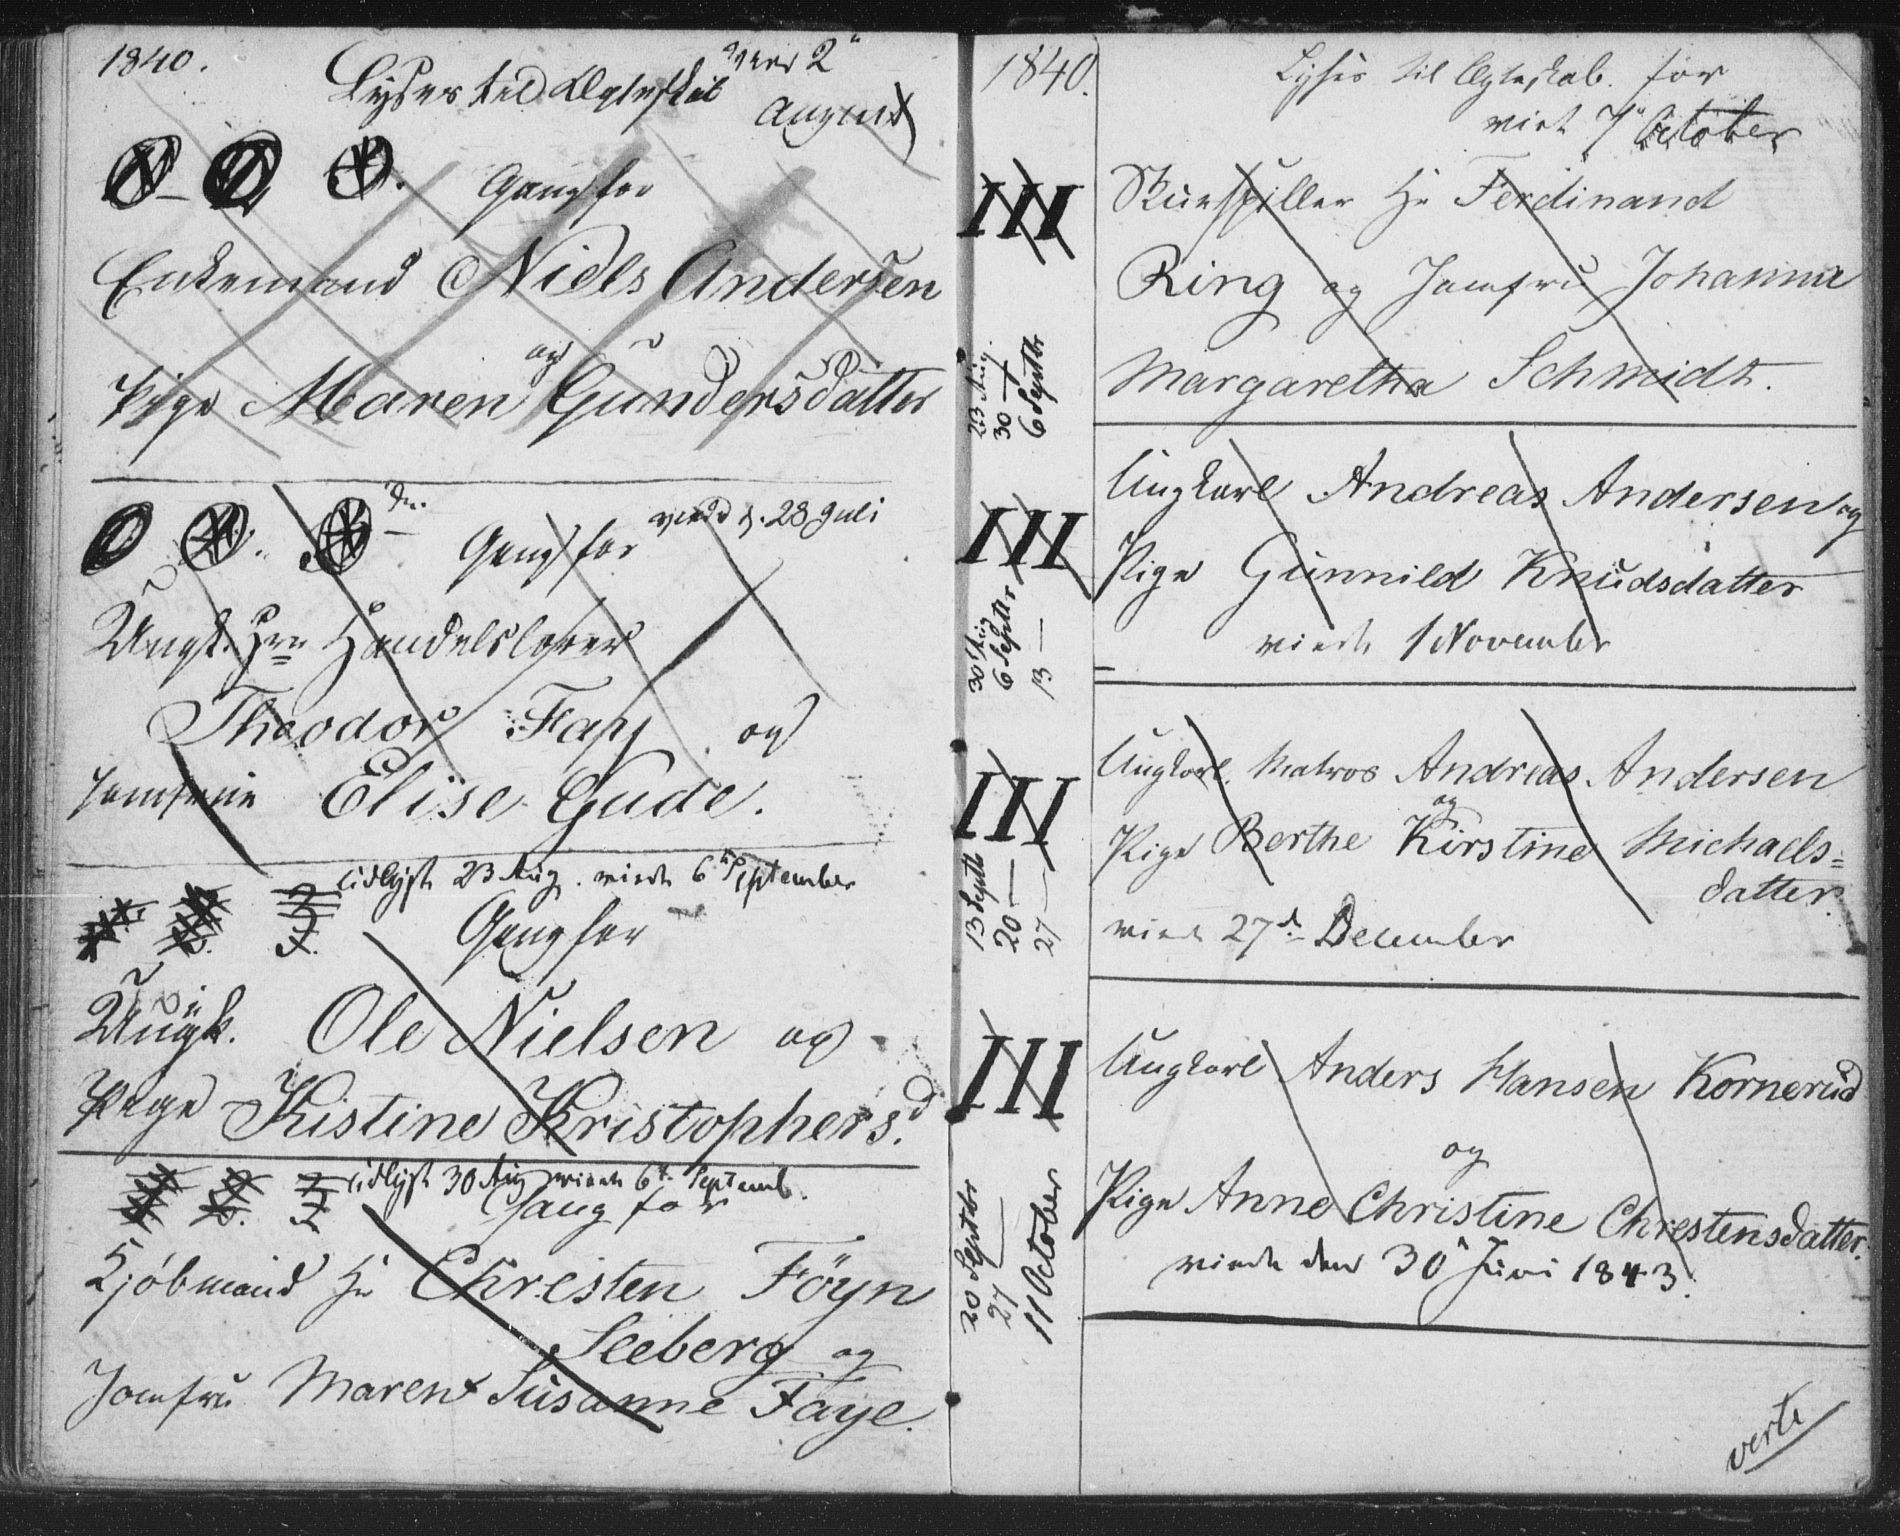 1840.
Lyses til Ægteskab viet 2
August
Gang for
Enkemand Niels Andersen
og
Pige Maren Gundersdatter
viede d. 28 Juli
Gang for
Ungk. Hrr Handelsborger
Theodor Fay og
Jomfrue Elise Gude.
udlyst 23 Aug. viede 6te September
Gang for
Ungk. Ole Nielsen og
Pige Kistine Kristophersd.
udlyst 30 Aug viede 6te Septemb.
Gang for
Kjöbmand Hr Christen Föyn
Seeberg og
Jomfru Maren Susanne Faye.
1840.
Lyses til Ægteskab. for
viet 7 October
III
Skuespiller Hr Ferdinand
Ring og Jomfru Johanna
Margaretha Schmidt.
23 Aug.
30 —
6 Septbr
III
Ungkarl Andreas Andersen og
Pige Gunnild Knudsdatter
viede 1 November
30 Aug
6 Septbr
13 —
III
Ungkarl. Matros Andreas Andersen
og
Pige Berthe Kirstine Michaels=
datter.
viede 27d December
13 Septb
20 —
27 —
III
Ungkarl Anders Hansen Kornerud
og
Pige Anne Christine Chrestensdatter.
viede den 30 Juni 1843.
20 Septbr
27 —
11 October
verte